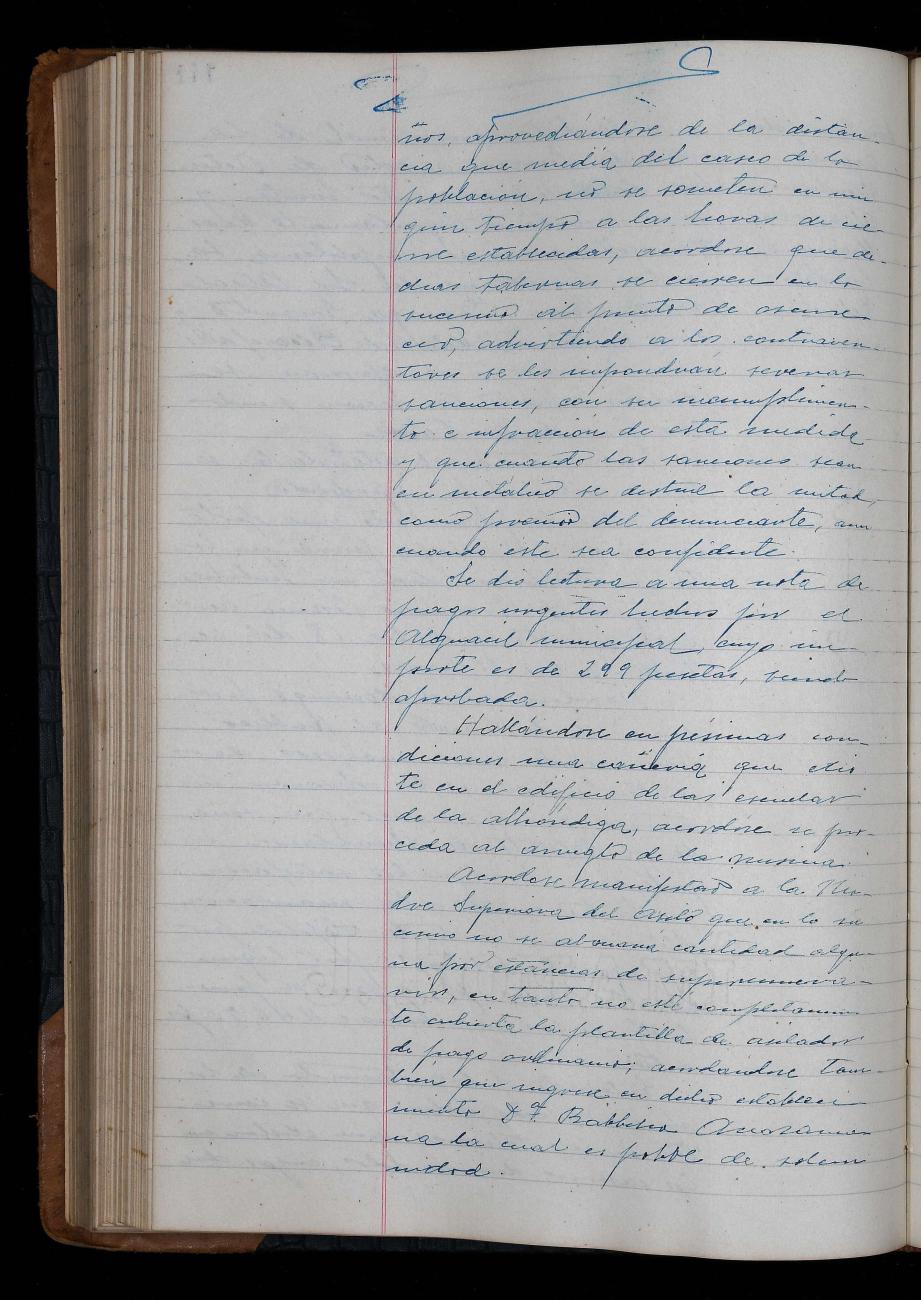 ños, aprovechándose de la distan-
cia que media del casco de la
población, no se someten en nin
gún tiempo a las horas de cie-
rre establecidas, acordose que di-
chas tabernas se cierren en lo
sucesivo al punto de oscure-
cer, advirtiendo a los contraven-
tores se les impondrán severas
sanciones, con su incumplimien-
to e infracción de esta medida
y que cuando las sanciones sean
en metálico se destine la mitad,
como premio del denunciante, aun
cuando este sea confidente.
Se dio lectura a una nota de
pagos urgentes hechos por el
Alguacil municipal, cuyo im-
porte es de 299 pesetas, siendo
aprobada.
Hallándose en pésimas con-
diciones una cañería que exis
te en el edificio de las escuelas
de la alhóndiga, acordose se pro-
ceda al arreglo de la misma.
Acordose manifestar a la Ma-
dre Superiora del asilo que en lo su
cesivo no se abonará cantidad algu-
na por estancias de supernumera-
rios, en tanto no esté completamen
te cubierta la plantilla de asilados
de pago ordinario; acordándose tam-
bién que ingrese en dicho estableci
miento Dª.
na la cual es pobre de solem
nidad.